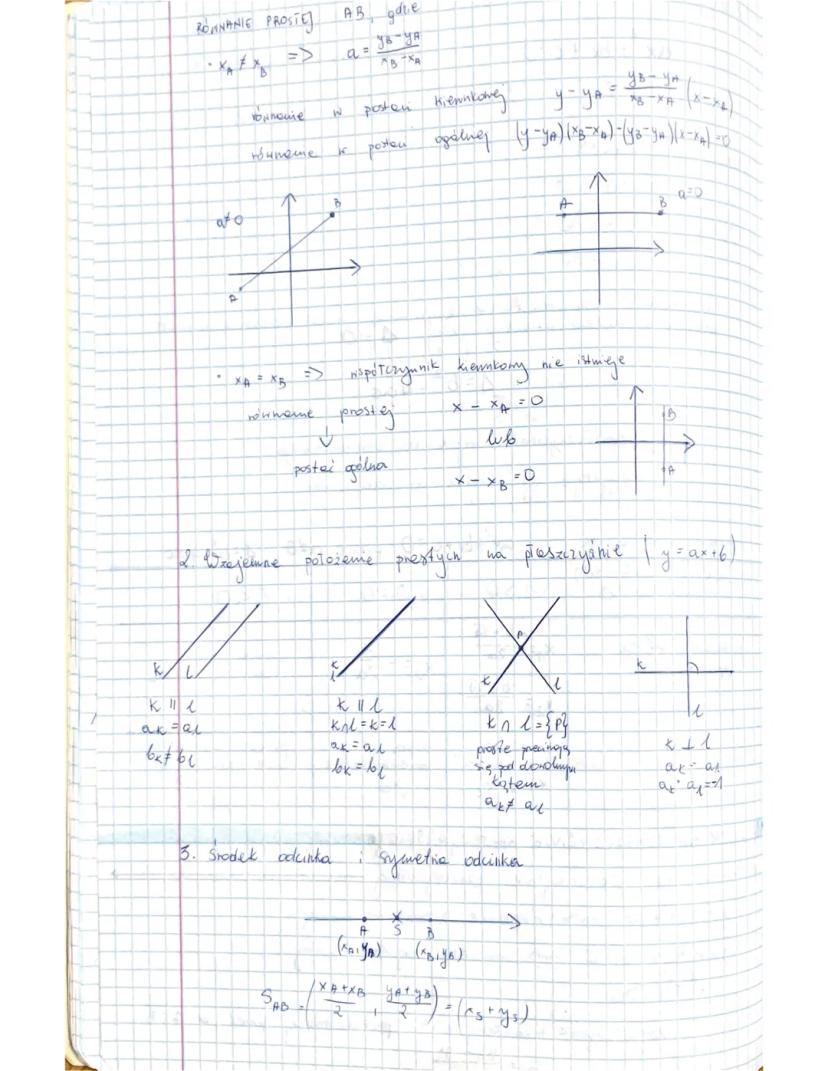 RÓWNANIE PROSTEJ AB, gdzie
• x_A ≠ x_B => a = (y_B - y_A)/(x_B - x_A)
równanie w postaci kierunkowej y - y_A = (y_B - y_A)/(x_B - x_A) (x - x_A)
równanie w postaci ogólnej (y-y_A)(x_B-x_A)-(y_B-y_A)(x-x_A)=0
a≠0
B
A
A
B
a=0
• x_A = x_B => współczynnik kierunkowy nie istnieje
równanie prostej x - x_A = 0
↓ lub
postać ogólna
x - x_B = 0
B
A
2. Wzajemne położenie prostych na płaszczyźnie ( y = ax+b)
k l
k || l
a_k = a_l
b_k ≠ b_l
k
l
k || l
k∩l=k=l
a_k = a_l
b_k = b_l
P
k l
k ∩ l = {P}
proste przecinają
się pod dowolnym
kątem
a_k ≠ a_l
k
l
k ⊥ l
a_k · a_l
a_k · a_l = -1
3. Środek odcinka i symetria odcinka
A S B
(x_A, y_A) (x_B, y_B)
S_AB = ((x_A + x_B)/2 , (y_A + y_B)/2) = (x_S + y_S)